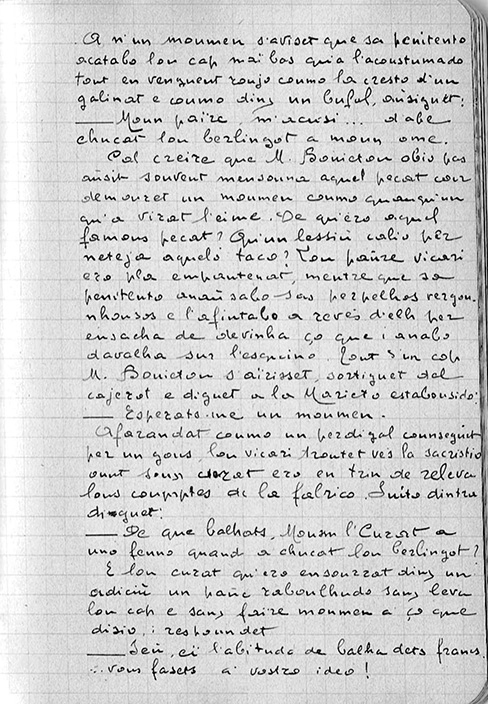 A n'un moumen s'aviset que sa penitento
acatabo lou cap maï bas qu'à l'acoustumado
tout en venguent roujo coumo la cresto d'un
galinat e coumo dins un buful, ausiguet:
— Moun païre, m'acusi... d'abe
chucat lou berlingot a moun ome.
Cal creire que M. Bouicton obio pas
ausit souvent mensouna aquel pecat car
demouret un moumen coumo quauqu'un
qu'a virat l'eime. De qu'èro aquel
famous pecat? Qu'un lessiu calio pèr
neteja aquelo taco? Lou paure vicari
ero pla empautenat, mentre que sa
penitento anaussabo sas perpelhos vergou-
nhousos e l'afintabo a revès d'elh per
ensacha de devinha ço que i anabo
davalha sus l'esquino. Tout d'un cop
M. Bouicton s'aïrisset, sortiguet del
cajerot e diguet a la Marieto estabousido:
— Esperats-me un moumen.
Afarandat coumo un perdigal counseguit
per un gous, lou vicari troutet vès la sacristio
ount soun curat ero en trin de releva
lous coumptes de la fabrico. Suito dintra
diguet:
— De que balhats, Moussu l'Curat a
uno fenno quand a chucat lou berlingot?
E lou curat qu'ero ensourrat dins un
adiciu un pauc raboulhudo sans leva
lou cap e sans faire moumen a ço que
disio, i respoundet
— Ieu, ei l'abitudo de balha dets francs.
: vous fasets a vostro ideo!